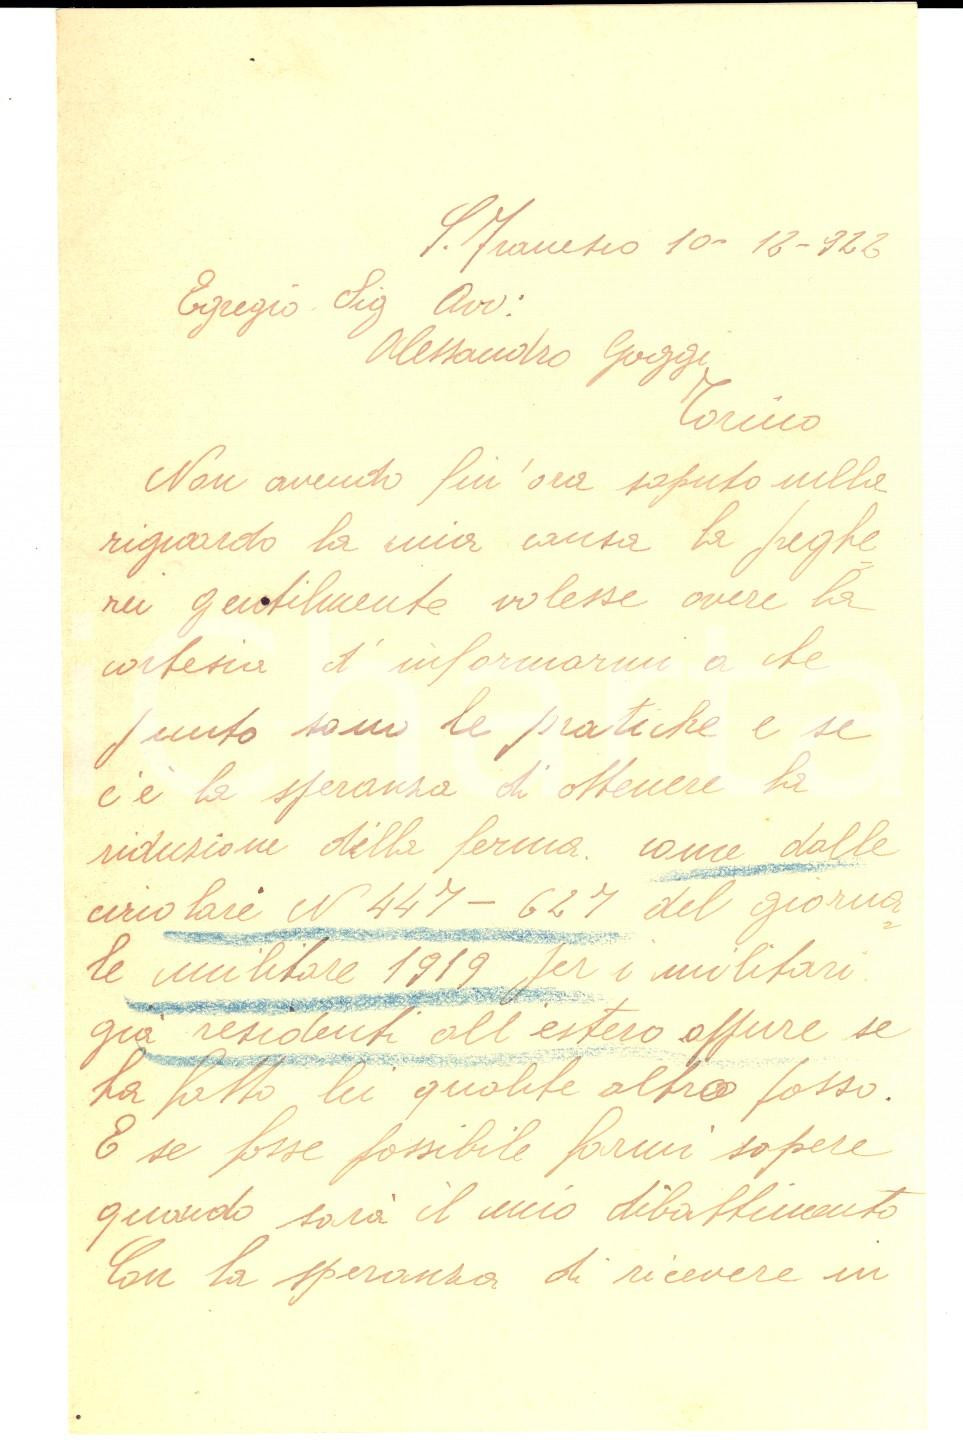 S. Francesco 10- 12-922
Egregio Sig Avv:
Alessandro Goggi
Torino
Non avendo fin'ora saputo nulla
riguardo la mia causa la preghe=
rei gentilmente volesse avere la
cortesia d'informarmi a che
punto sono le pratiche e se
c'è la speranza di ottenere la
riduzione della ferma. come dalle
circolari N 447 - 627 del giorna=
le militare 1919 per i militari
già residenti all'estero oppure se
ha fatto lei qualche altro passo.
E se fosse possibile farmi sapere
quando sarà il mio dibattimento
Con la speranza di ricevere in